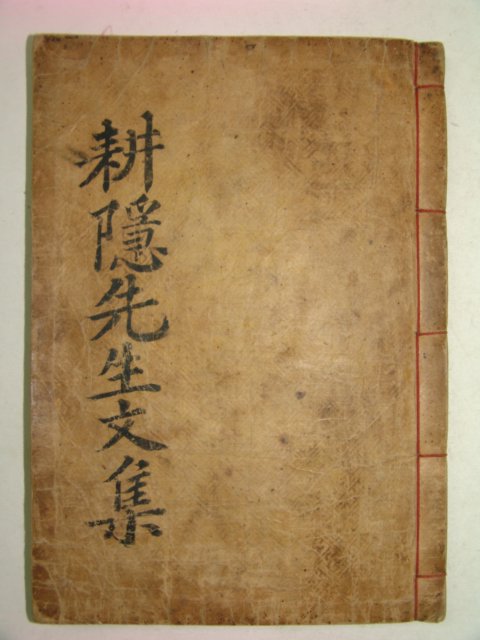 耕隱先生文集